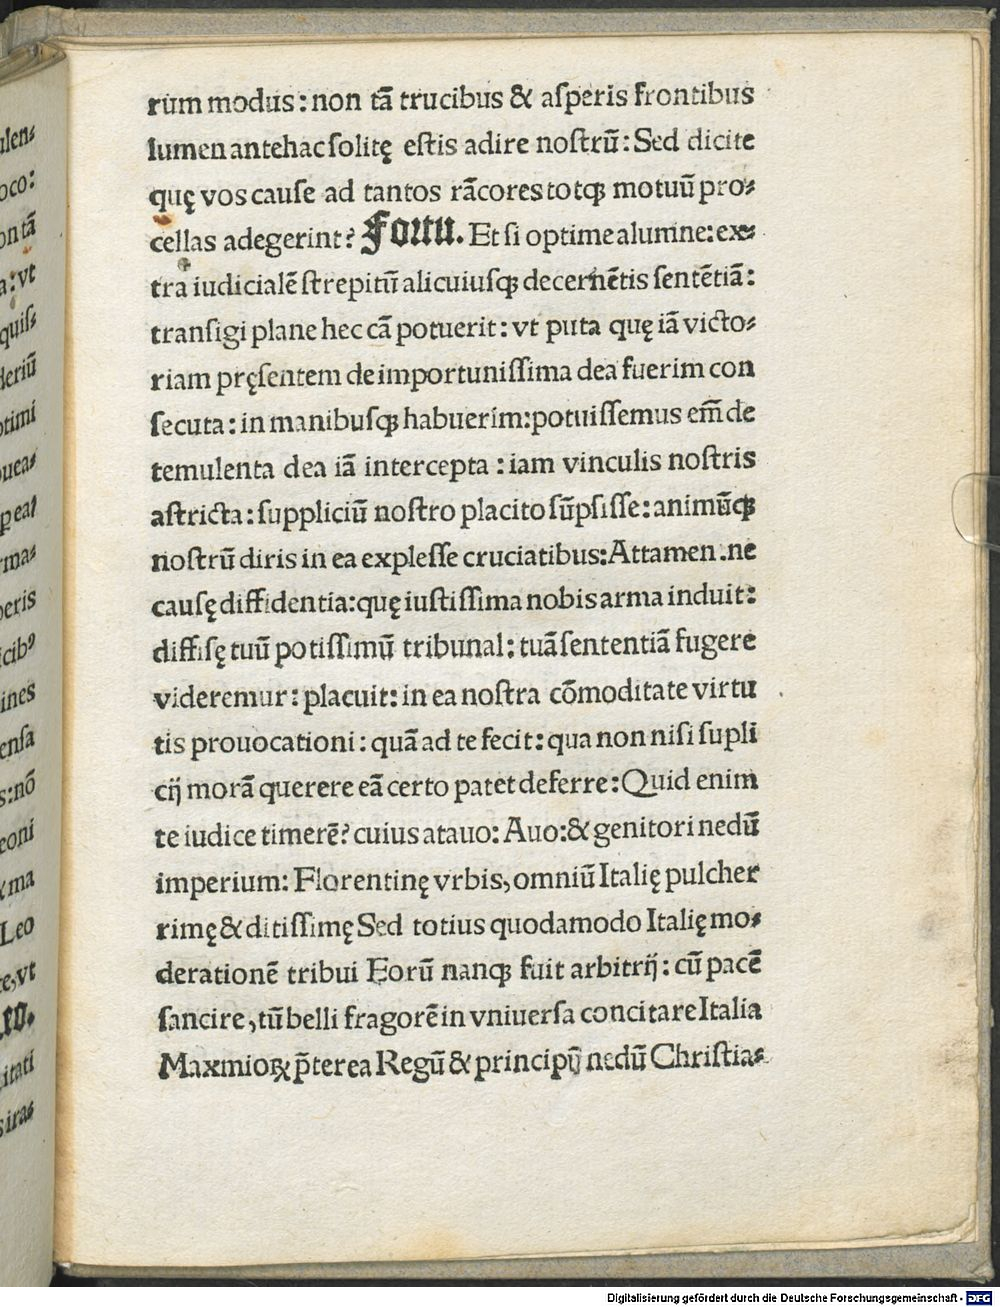 rum modus: non tã trucibus & aſperis frontibus
lumen antehac ſolitę eſtis adire noſtrũ: Sed dicite
quę vos cauſe ad tantos rãcores totqꝫ motuũ pro⸗
cellas adegerint? Fortu. Et ſi optime alumne: ex⸗
tra iudicialẽ ſtrepitũ alicuiuſqꝫ decernẽtis ſentẽtiã:
tranſigi plane hec cã potuerit: vt puta quę iã victo⸗
riam pręſentem de importuniſſima dea fuerim con
ſecuta: in manibuſqꝫ habuerim: potuiſſemus em̃ de
temulenta dea iã intercepta: iam vinculis noſtris
aſtricta: ſuppliciũ noſtro placito ſũpſiſſe: animũqꝫ
noſtrũ diris in ea expleſſe cruciatibus: Attamen. ne
cauſę diffidentia: quę iuſtiſſima nobis arma induit:
diffiſę tuũ potiſſimũ tribunal: tuã ſententiã fugere
videremur: placuit: in ea noſtra cõmoditate virtu
tis prouocationi: quã ad te fecit: qua non niſi ſupli
cĳ morã querere eã certo patet deferre: Quid enim
te iudice timerẽ? cuius atauo: Auo: & genitori nedũ
imperium: Florentinę vrbis, omniũ Italię pulcher
rimę & ditiſſimę Sed totius quodamodo Italię mo⸗
derationẽ tribui Eorũ nanqꝫ fuit arbitrĳ: cũ pacẽ
ſancire, tũ belli fragorẽ in vniuerſa concitare Italia
Maxmioꝝ p̃terea Regũ & principũ nedũ Chriſtia⸗
ulen⸗
oco:
on tã
a: vt
quiſ⸗
deriũ
otimi
ouea⸗
pea
rma⸗
peris
icibꝰ
ines
enſa
s: nõ
eoni
& ma
Leo
te, vt
itati
s iras
Digitalisierung gefördert durch die Deutsche Forschungsgemeinschaft - DFG